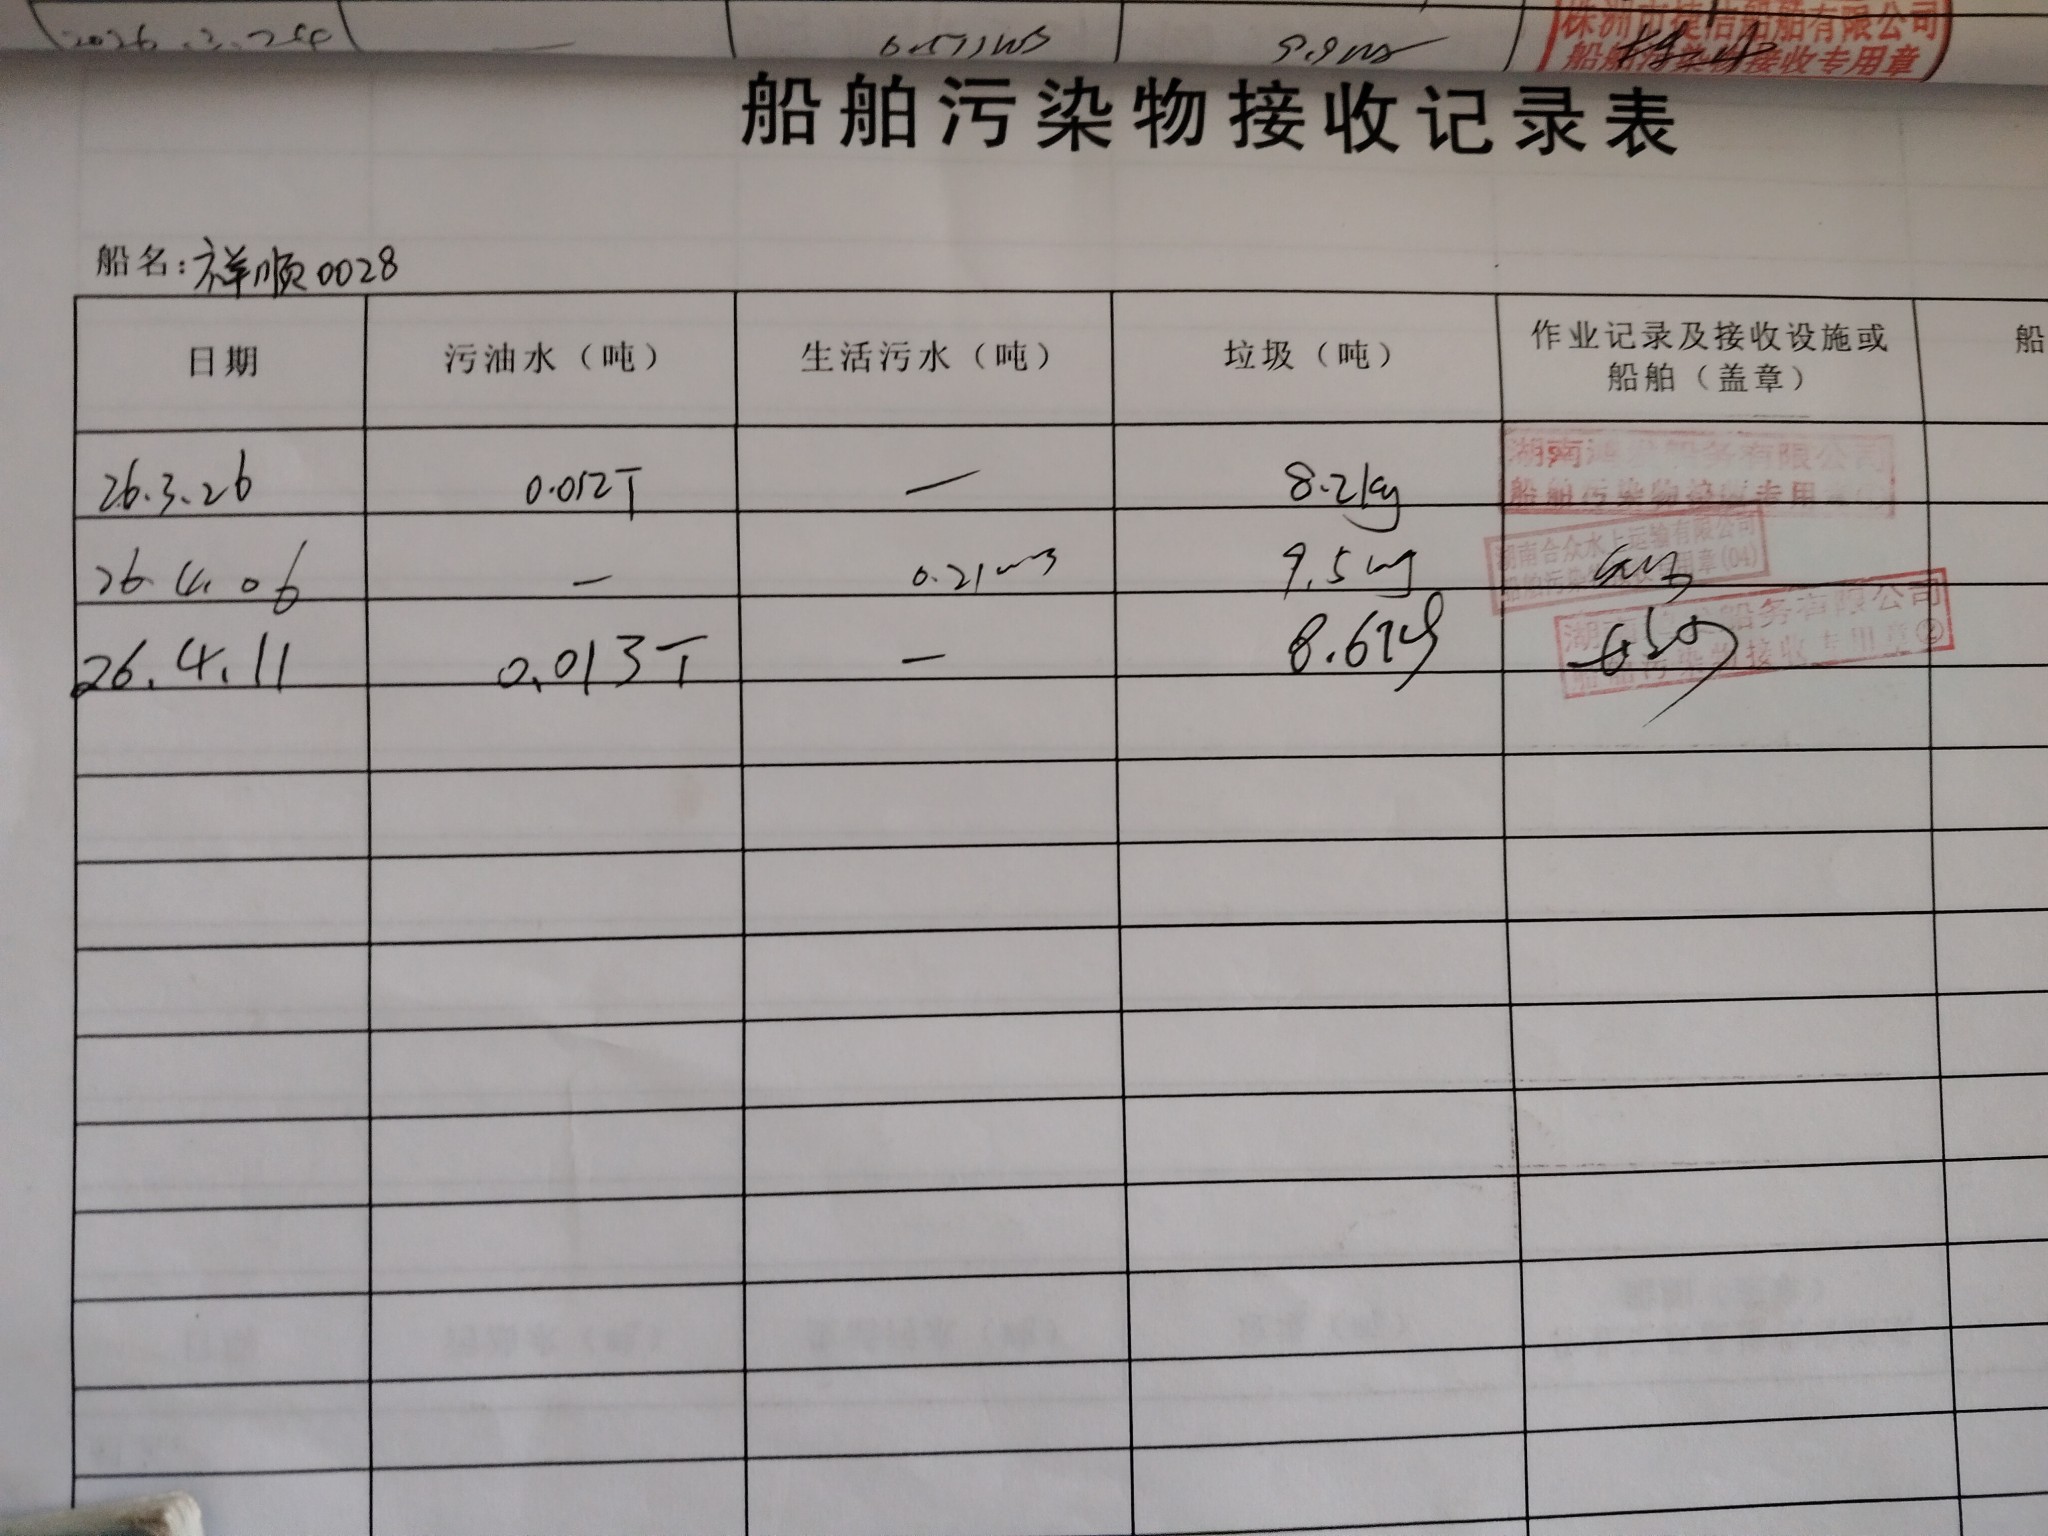 株洲市捷信船舶有限公司
船舶污染物接收专用章
船舶污染物接收记录表
船名:祥顺0028
日期 污油水（吨） 生活污水（吨） 垃圾（吨） 作业记录及接收设施或 船
船舶（盖章）
26.3.26 0.012T — 8.2kg
湖南 船务有限公司
船舶污染物接收专用
26.4.06 — 0.21m3 9.5kg
湖南合众水上运输有限公司
船舶污染物接收专用章(04)
26.4.11 0.013T — 8.6kg
湖南 船务有限公司
船舶污染物接收专用章②